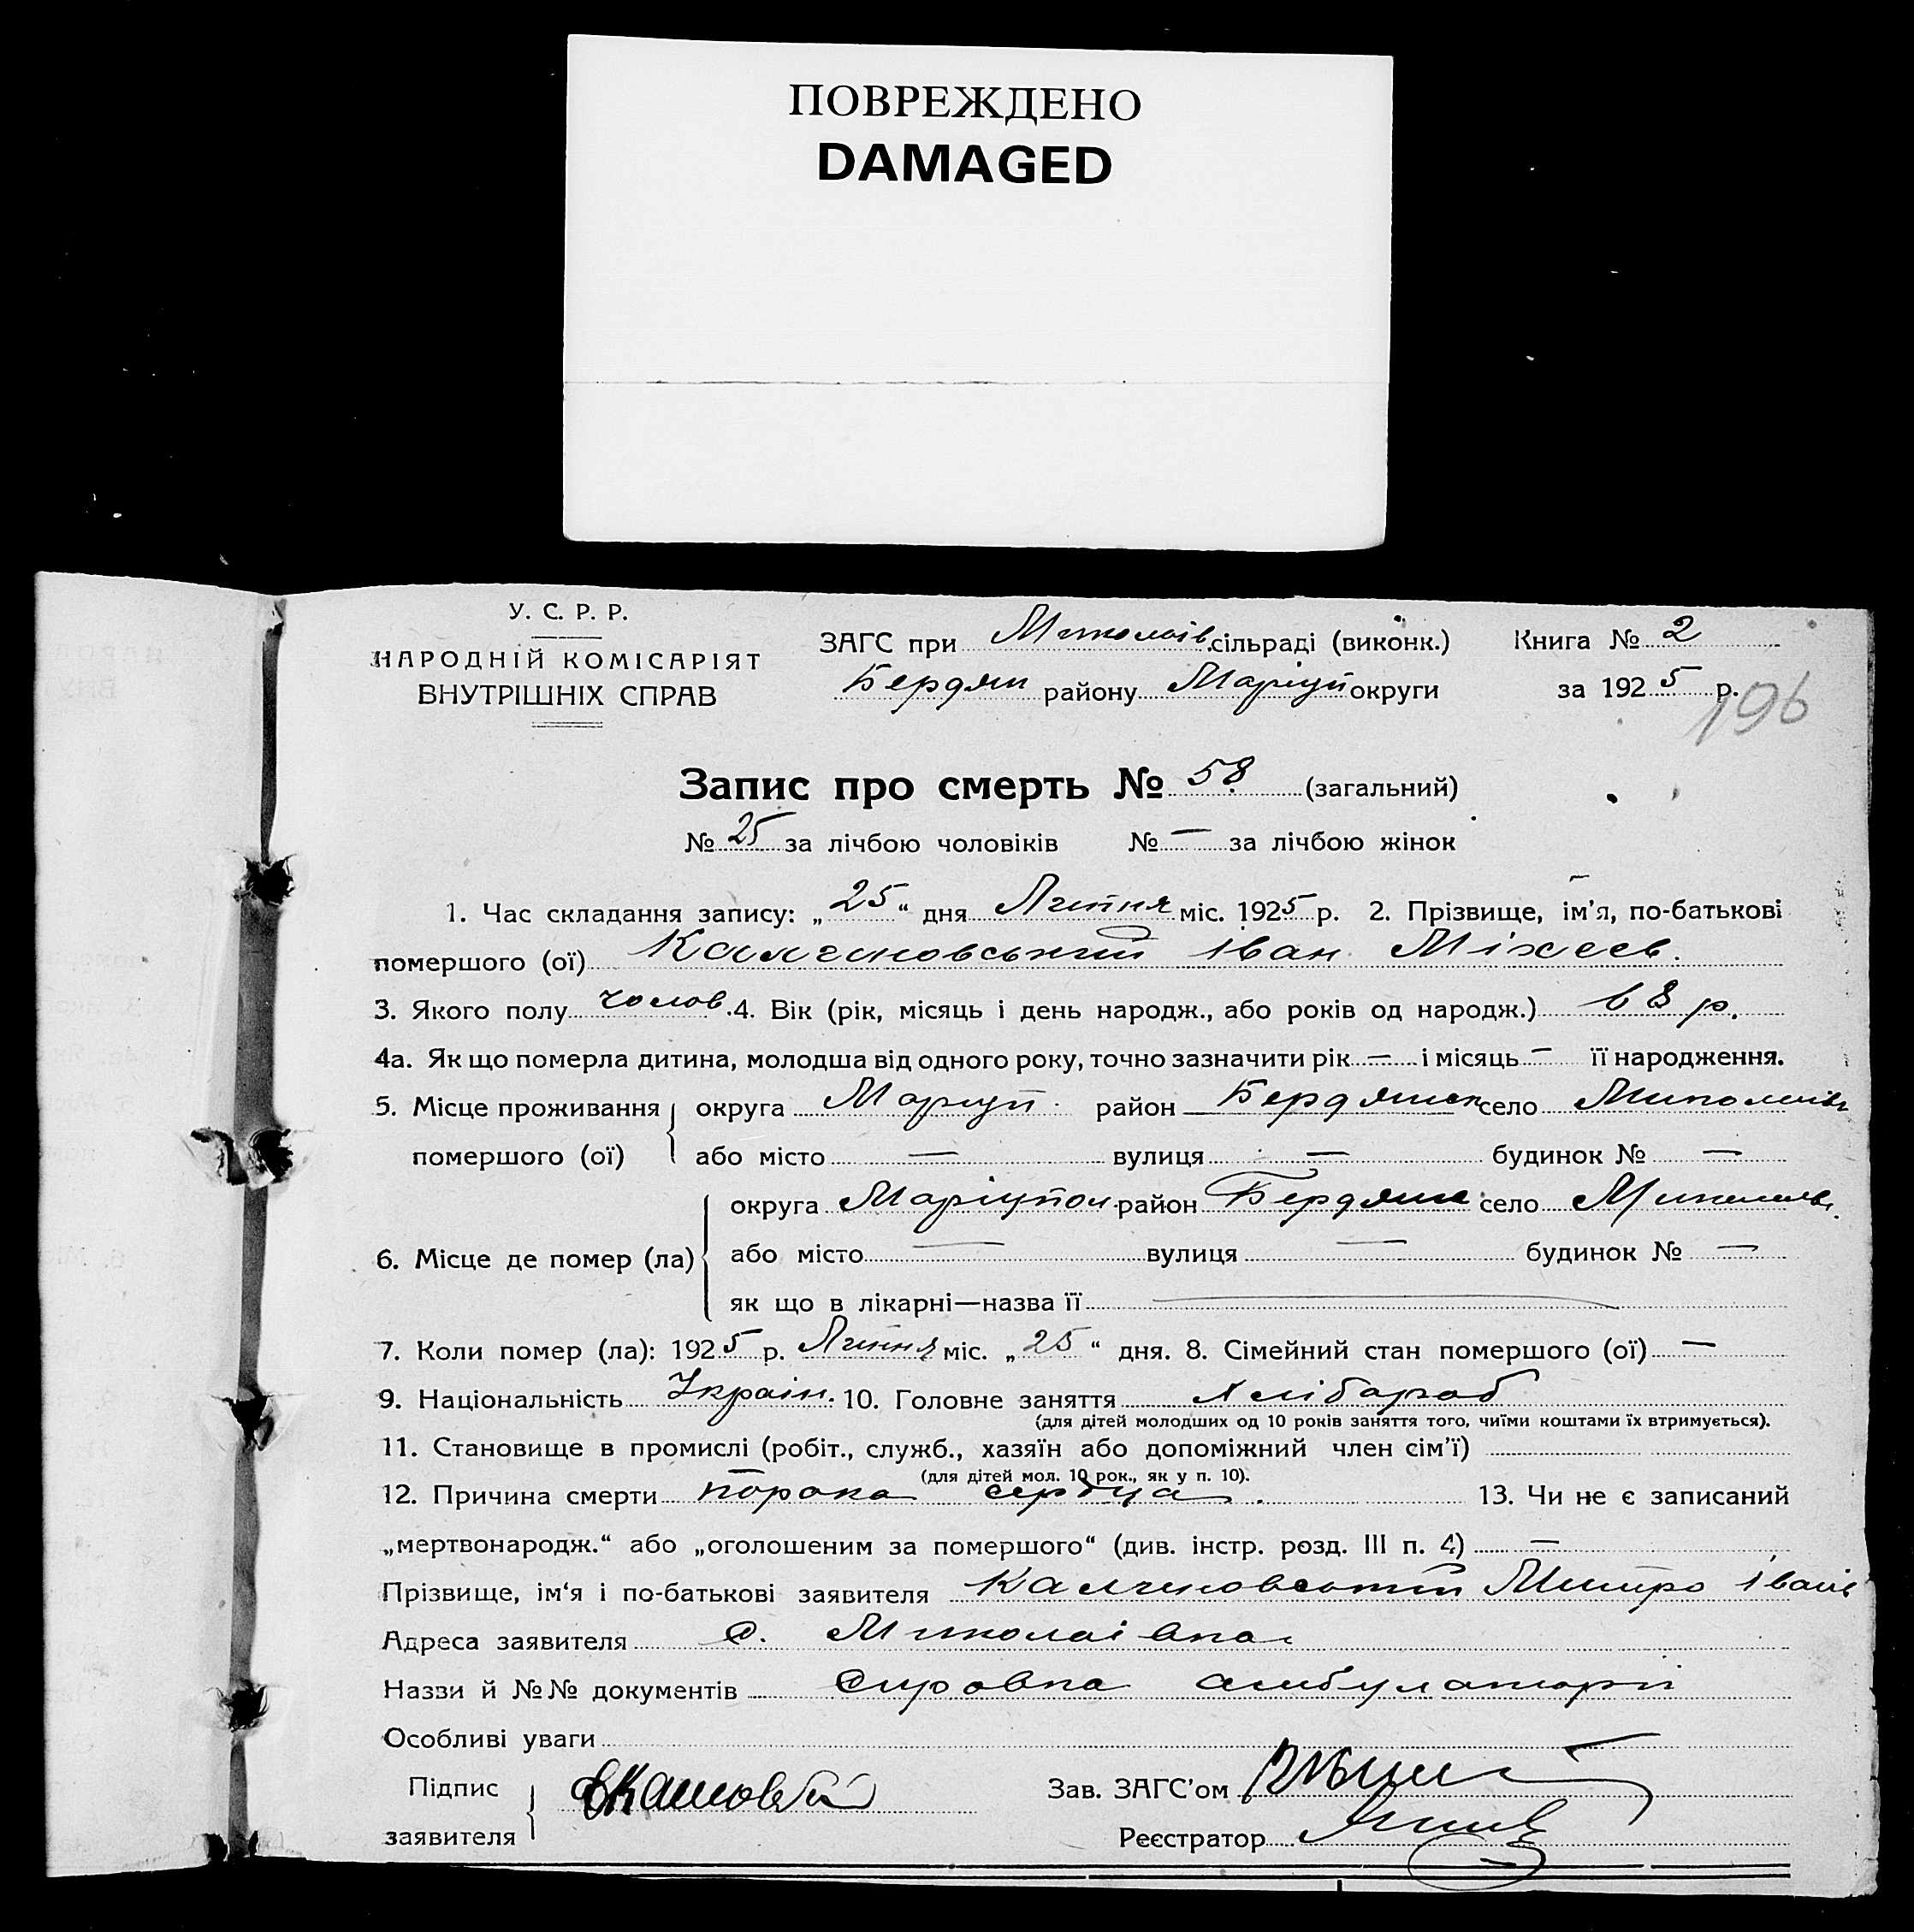 ПОВРЕЖДЕНО
DAMAGED
У. С. Р. Р.
НАРОДНІЙ КОМІСАРІЯТ
ВНУТРІШНІХ СПРАВ
ЗАГС при Миколаїв. сільраді (виконк.) Книга № 2
Бердян району Маріуп округи за 1925 р.
196
Запис про смерть № 58 (загальний)
№ 25 за лічбою чоловіків № — за лічбою жінок
1. Час складання запису: „25“ дня Липня міс. 1925 р. 2. Прізвище, ім’я, по-батькові
помершого (ої) Іван Міхеєв.
3. Якого полу чолов. 4. Вік (рік, місяць і день народж., або років од народж.) 68 р.
4а. Як що померла дитина, молодша від одного року, точно зазначити рік — і місяць — її народження.
5. Місце проживання округа Маріуп. район Бердянськ село Миколаїв
помершого (ої) або місто — вулиця — будинок № —
округа Маріупол. район Бердянс село Миколаїв.
6. Місце де помер (ла) або місто — вулиця — будинок № —
як що в лікарні—назва її —
7. Коли помер (ла): 1925 р. Липня міс. „25“ дня. 8. Сімейний стан помершого (ої) —
9. Національність Україн. 10. Головне заняття хлібороб
(для дітей молодших од 10 років заняття того, чиїми коштами їх втримується).
11. Становище в промислі (робіт., служб., хазяїн або допоміжний член сім’ї)
(для дітей мол. 10 рок., як у п. 10).
12. Причина смерти порока сердца. 13. Чи не є записаний
„мертвонародж.“ або „оголошеним за помершого“ (див. інстр. розд. III п. 4) —
Прізвище, ім‘я і по-батькові заявителя Митро Іванів
Адреса заявителя с. Миколаівка
Назви й №№ документів амбулаторії
Особливі уваги
Підпис
заявителя
Зав. ЗАГС’ом
Реєстратор